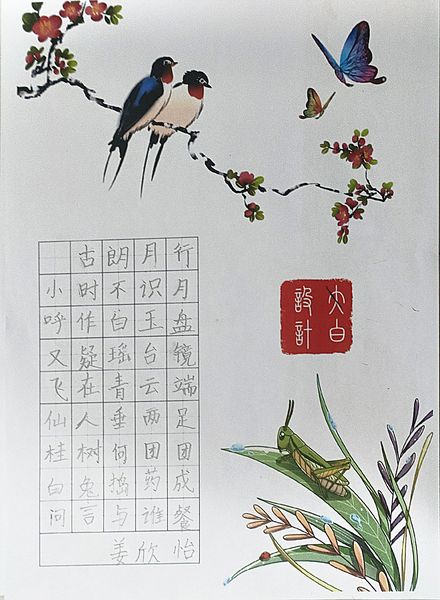 古朗月行
小时不识月
呼作白玉盘
又疑瑶台镜
飞在青云端
仙人垂两足
桂树何团团
白兔捣药成
问言与谁餐
姜欣怡
大白
設計